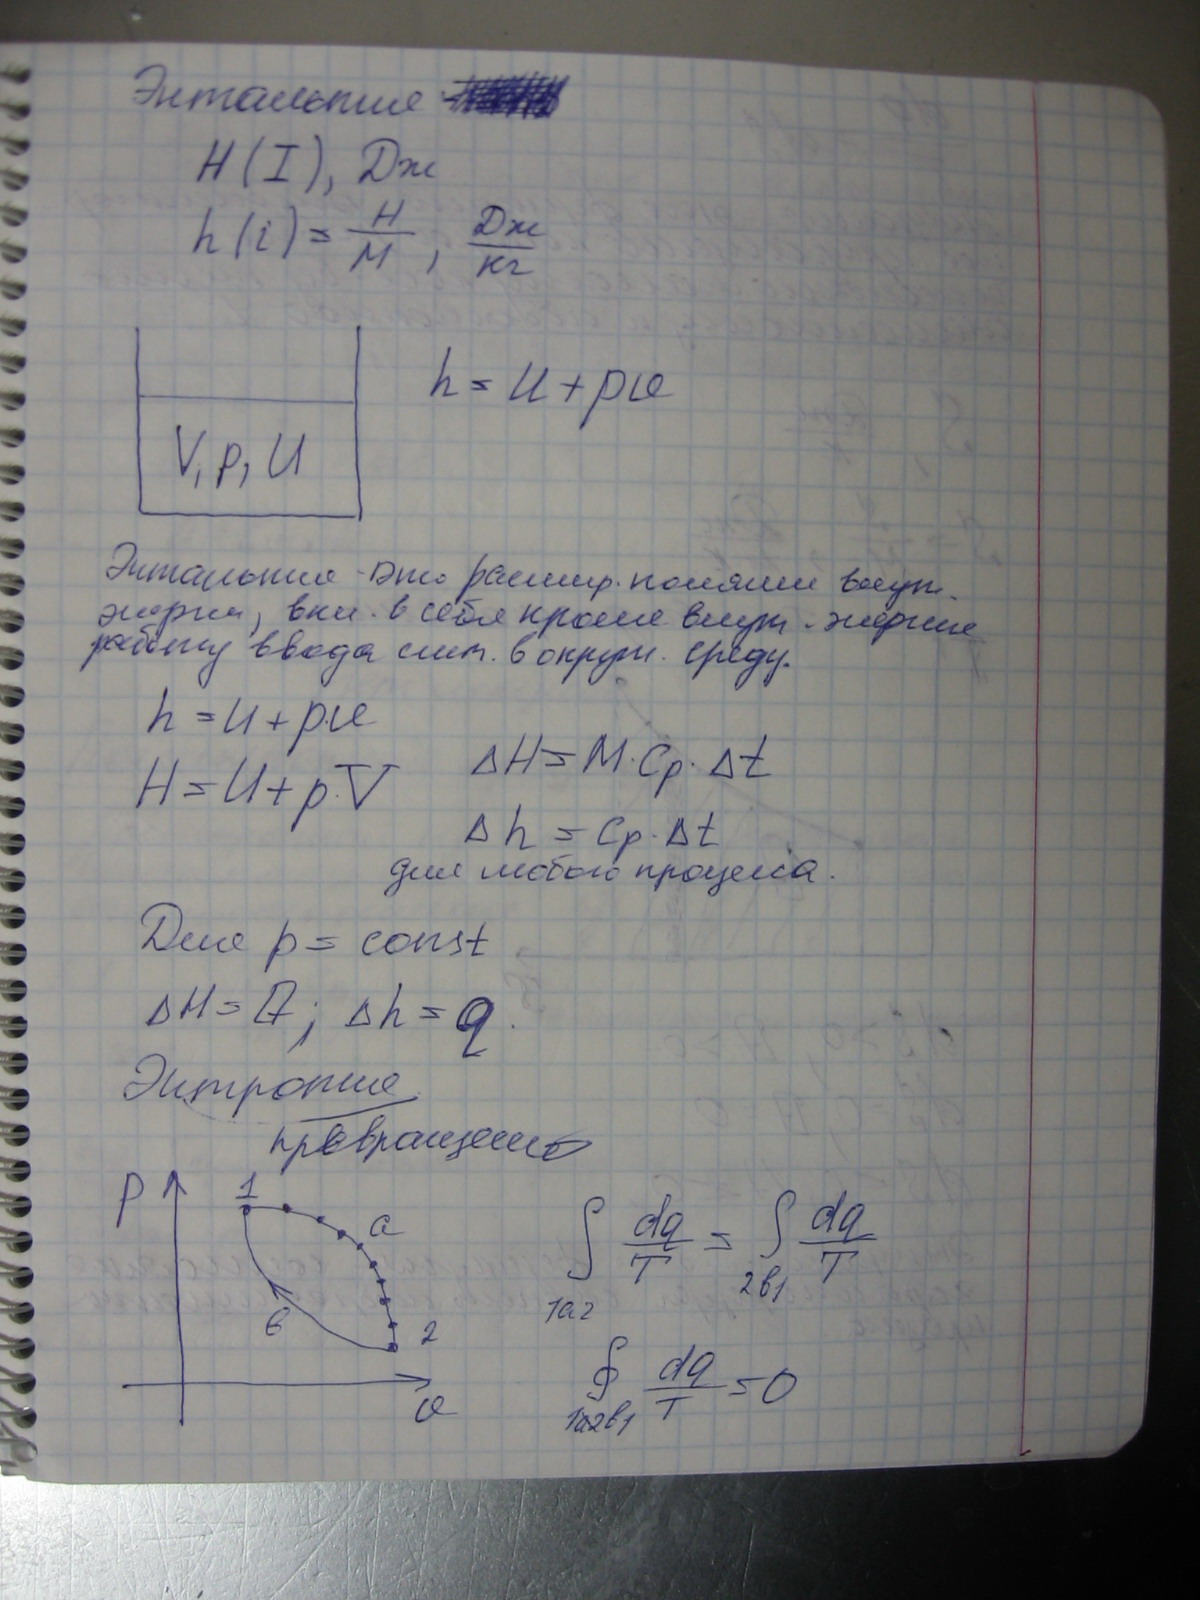 Энтальпия
H(I), Дж
h(i) = H/M, Дж/кг
h = U + pv
V, p, U
Энтальпия - это расшир. поняти внут.
энергии, вкл. в себя кроме внут. энергии
работу ввода сист. в окруж. среду.
h = U + p·v
H = U + p·V
ΔH = M·Cp·Δt
Δh = Cp·Δt
для любого процесса.
Для p = const
ΔH = Q; Δh = q.
Энтропия
превращение
p
1
a
в
2
v
∫1a2 dq/T = ∫2в1 dq/T
∮1a2в1 dq/T = 0